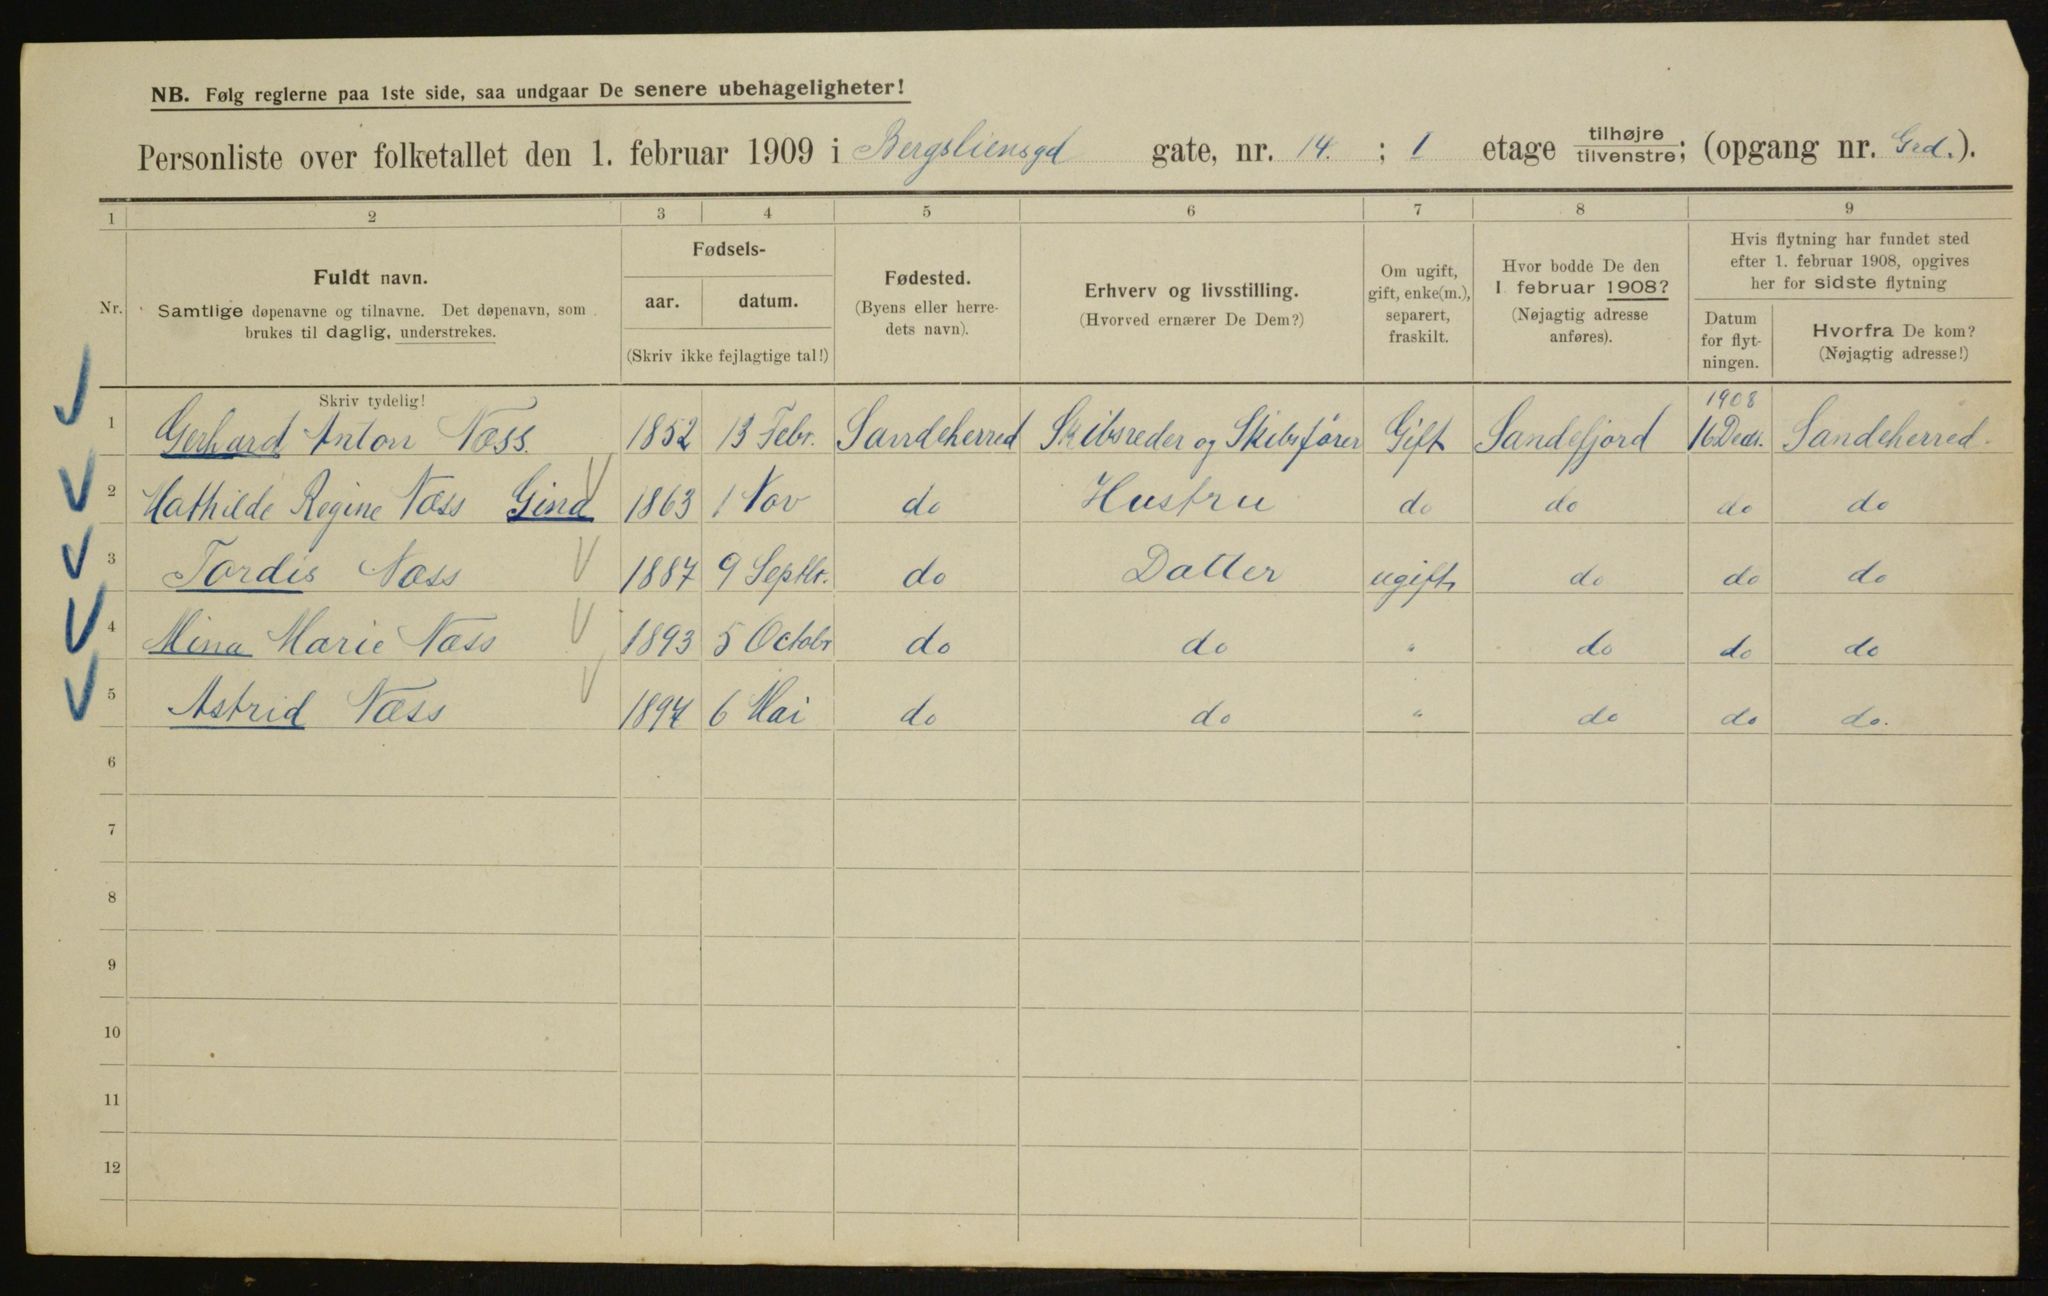 NB. Følg reglerne paa 1ste side, saa undgaar De senere ubehageligheter!
Personliste over folketallet den 1. februar 1909 i Bergsliensgd gate, nr. 14. ; I etage tilhøjre tilvenstre; (opgang nr. Grd.).
1 2 3 4 5 6 7 8 9
Nr.
Fuldt navn.
Samtlige døpenavne og tilnavne. Det døpenavn, som
brukes til daglig, understrekes.
Fødsels-
aar. datum.
(Skriv ikke fejlagtige tal!)
Fødested.
(Byens eller herre-
dets navn).
Erhverv og livsstilling.
(Hvorved ernærer De Dem?)
Om ugift,
gift, enke(m.),
separert,
fraskilt.
Hvor bodde De den
1 februar 1908?
(Nøjagtig adresse
anføres).
Hvis flytning har fundet sted
efter 1. februar 1908, opgives
her for sidste flytning
Datum
for flyt-
ningen.
Hvorfra De kom?
(Nøjagtig adresse!)
Skriv tydelig!
1908
1 Gerhard Anton Næss. 1852 13 Febr. Sandeherred Skibsreder og Skibsfører Gift Sandefjord 16 Decbr. Sandeherred
2 Mathilde Regine Næss Gina 1863 1 Nov do Hustru do do do do
3 Tordis Næss 1887 9 Septbr. do Datter ugift do do do
4 Mina Marie Næss 1893 5 Octobr do do " do do do
5 Astrid Næss 1897 6 Mai do do " do do do.
6
7
8
9
10
11
12